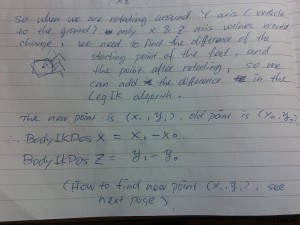 so when we are rotating around Y axis (vertical
to the ground) only x & z axis values would
change, we need to find the difference of the
starting point of the feet, and
the point after rotating, so we
can add the difference in the
LegIk algorith.
The new point is (x₁, y₁), old point is (x₀, y₀)
∴ BodyIKPosX = x₁ - x₀
BodyIKPosZ = y₁ - y₀
(How to find new point (x₁, y₁), see
next page).